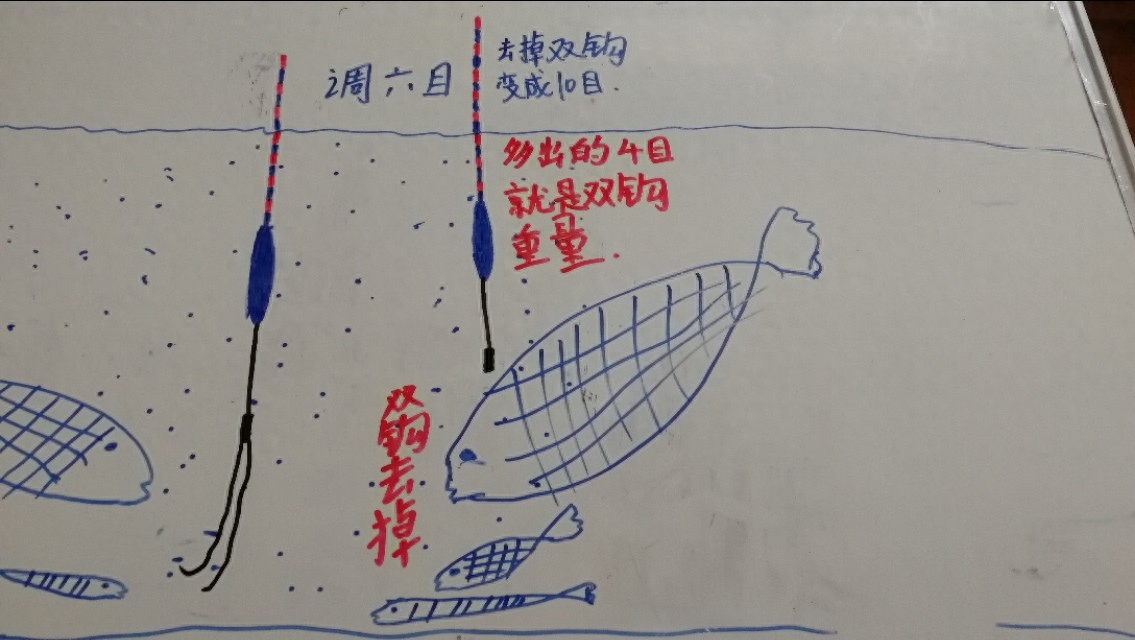 调六目
去掉双钩
变成10目.
多出的4目
就是双钩
重量.
双钩去掉